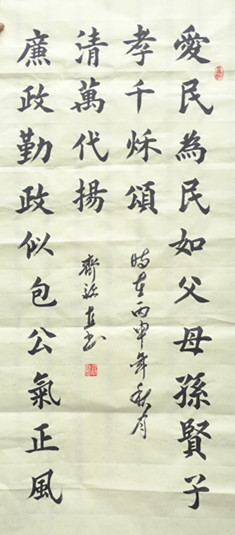 愛民為民如父母孫賢子
孝千秋頌
廉政勤政似包公氣正風
清萬代揚
時在丙申年秋月